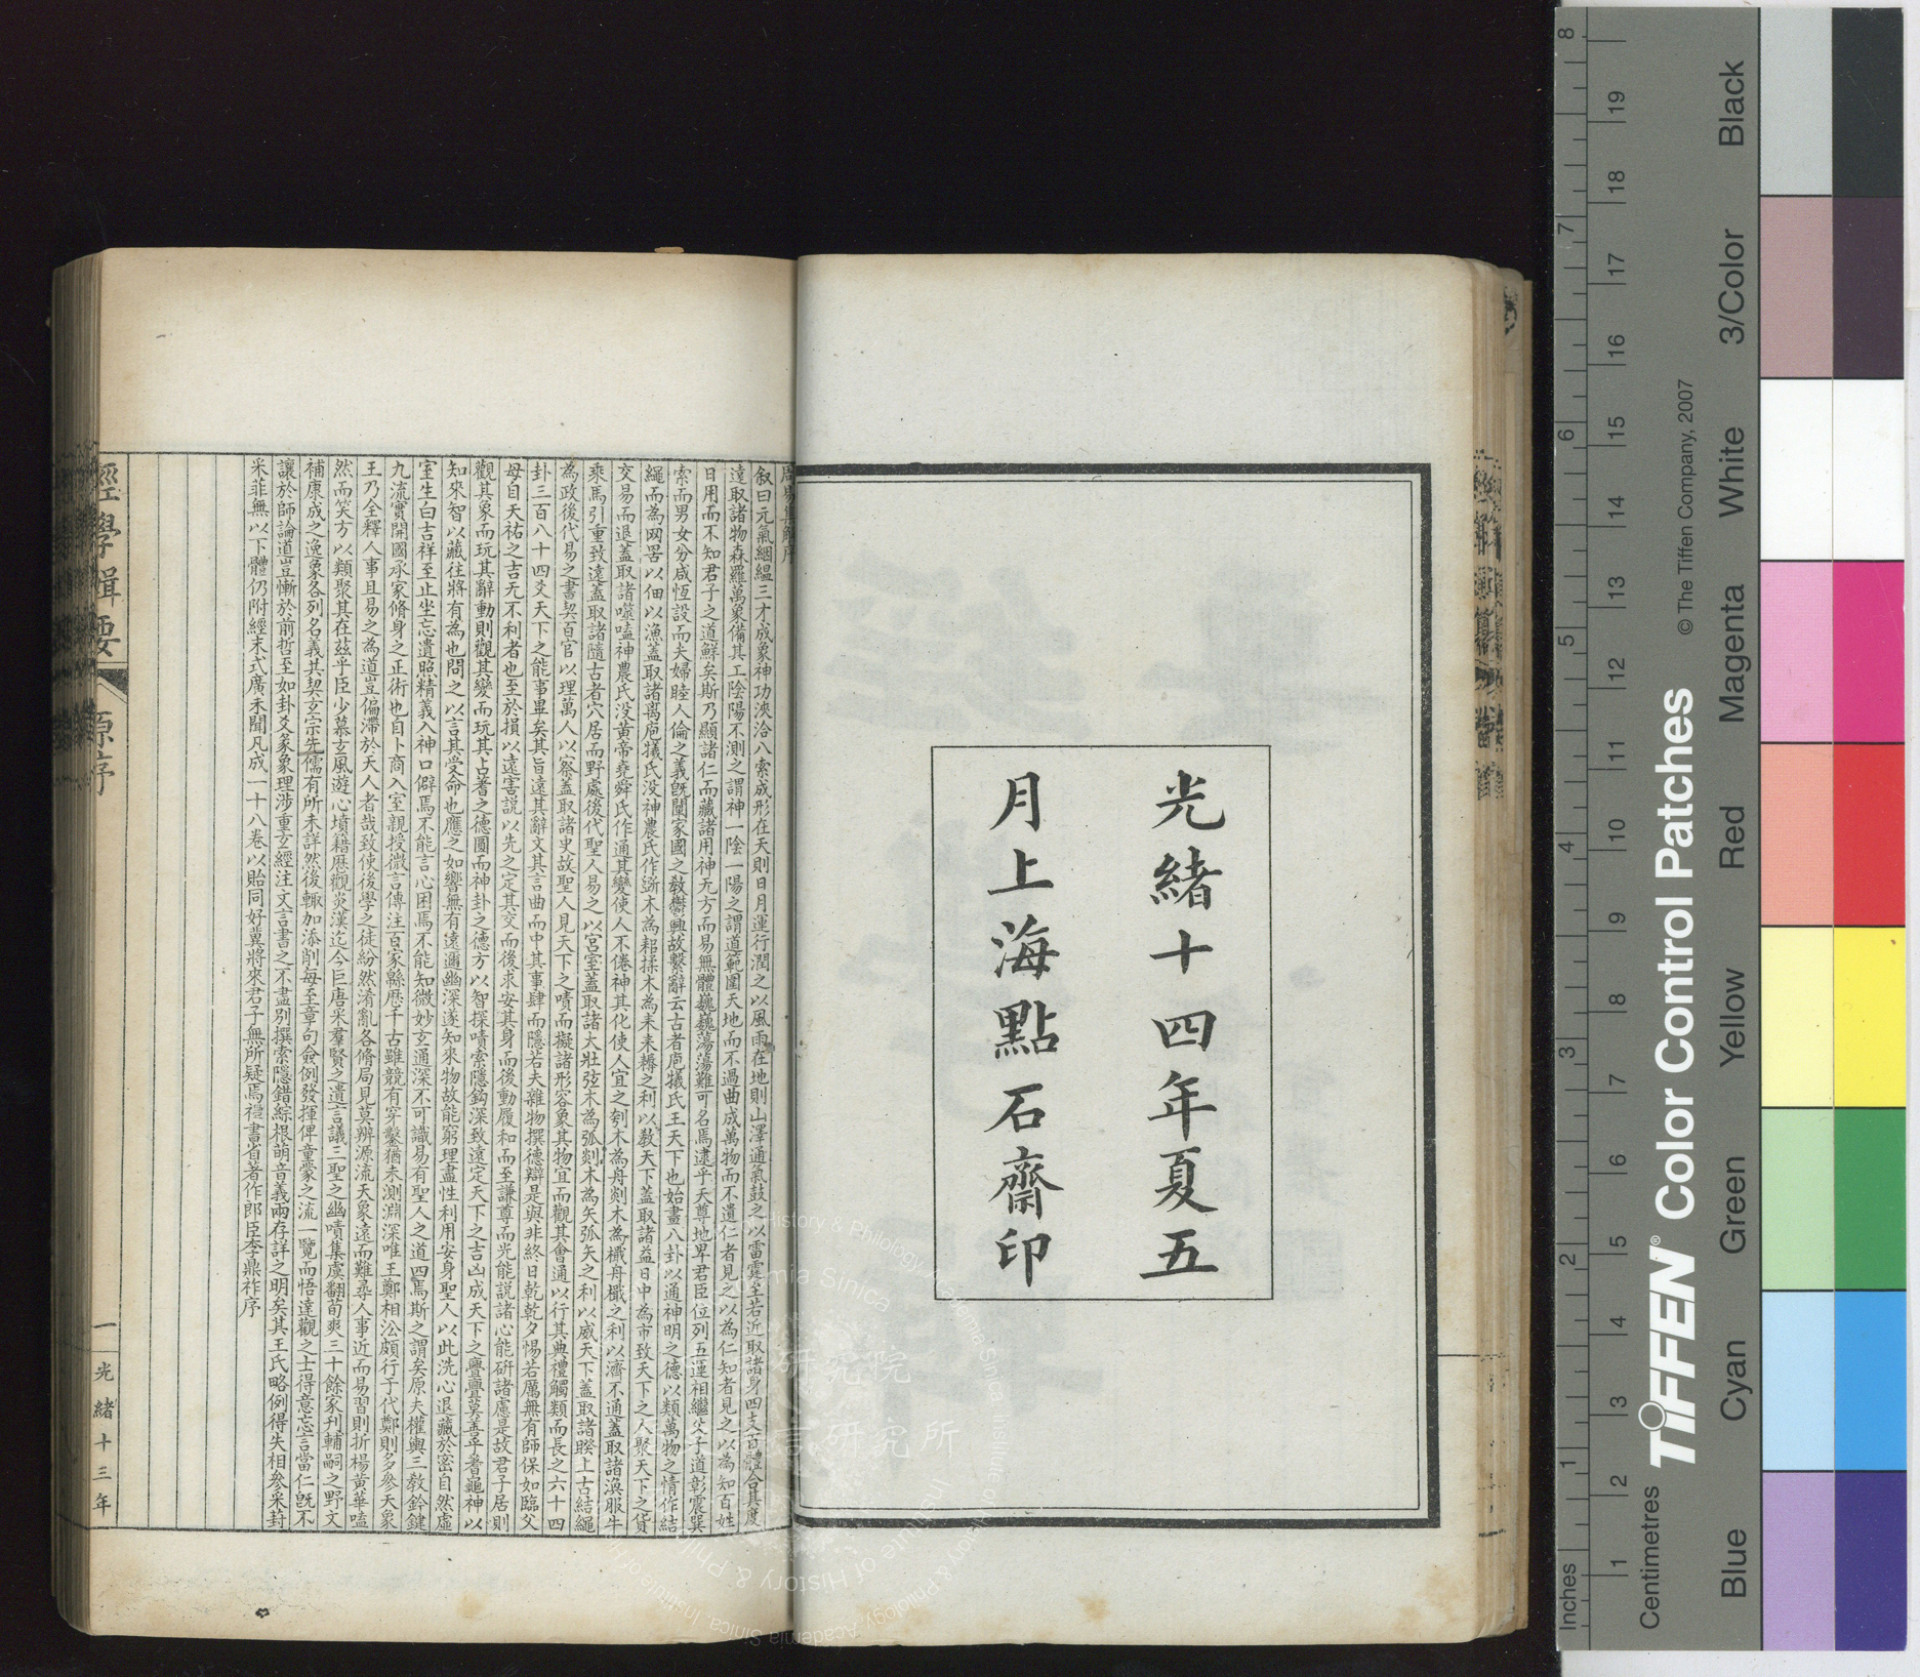 光緒十四年夏五
月上海點石齋印
周易集解序
叙曰元氣絪縕三才成象神功浹洽八索成形在天則日月運行潤之以風雨在地則山澤通氣鼓之以雷霆至若近取諸身四支百體合其度
遠取諸物森羅萬象備其工陰陽不測之謂神一陰一陽之謂道範圍天地而不過曲成萬物而不遺仁者見之以為仁知者見之以為知百姓
日用而不知君子之道鮮矣斯乃顯諸仁而藏諸用神无方而易無體巍巍蕩蕩難可名焉逮乎天尊地卑君臣位列五運相繼父子道彰震巽
索而男女分咸恆設而夫婦睦人倫之義旣闡家國之敎鬱興故繫辭云古者庖犧氏王天下也始畫八卦以通神明之德以類萬物之情作結
繩而為网罟以佃以漁蓋取諸离庖犧氏没神農氏作斲木為耜揉木為耒耒耨之利以敎天下蓋取諸益日中為市致天下之人聚天下之貨
交易而退蓋取諸噬嗑神農氏没黄帝堯舜氏作通其變使人不倦神其化使人宜之刳木為舟剡木為檝舟檝之利以濟不通蓋取諸渙服牛
乘馬引重致遠蓋取諸隨古者穴居而野處後代聖人易之以宮室蓋取諸大壯弦木為弧剡木為矢弧矢之利以威天下蓋取諸睽上古結繩
為政後代易之書契百官以理萬人以察蓋取諸史故聖人見天下之嘖而擬諸形容象其物宜而觀其會通以行其典禮觸類而長之六十四
卦三百八十四爻天下之能事畢矣其旨遠其辭文其言曲而中其事肆而隱若夫雜物撰德辯是與非終日乾乾夕惕若厲無有師保如臨父
母自天祐之吉无不利者也至於損以遠害説以先之定其交而後求安其身而後動履和而至謙尊而光能説諸心能硏諸慮是故君子居則
觀其象而玩其辭動則觀其變而玩其占蓍之德圓而神卦之德方以智探嘖索隱鈎深致遠定天下之吉凶成天下之亹亹莫善乎蓍龜神以
知來智以藏往將有為也問之以言其受命也應之如響無有遠邇幽深遂知來物故能窮理盡性利用安身聖人以此洗心退藏於密自然虛
室生白吉祥至止坐忘遺照精義入神口僻焉不能言心困焉不能知微妙玄通深不可識易有聖人之道四焉斯之謂矣原夫權輿三敎鈐鍵
九流實開國承家脩身之正術也自卜商入室親授微言傳注百家緜歴千古雖競有穿鑿猶未測淵深唯王鄭相㳂頗行于代鄭則多參天象
王乃全釋人事且易之為道豈偏滯於天人者哉致使後學之徒紛然淆亂各脩局見莫辨源流天象遠而難尋人事近而易習則折楊黄華嗑
然而笑方以類聚其在茲乎臣少慕玄風遊心墳籍歴觀炎漢迄今巨唐采羣賢之遺言議三聖之幽嘖集虞翻荀爽三十餘家刊輔嗣之野文
補康成之逸象各列名義共契玄宗先儒有所未詳然後輙加添削每至章句僉例發揮俾童蒙之流一覽而悟達觀之士得意忘言當仁旣不
讓於師論道豈慚於前哲至如卦爻彖象理涉重玄經注文言書之不盡别撰索隱錯綜根萌音義兩存詳之明矣其王氏略例得失相參采葑
采菲無以下體仍附經末式廣未聞凡成一十八卷以貽同好冀將來君子無所疑焉禮書省著作郎臣李鼎祚序
經學輯要
原序
一
光緒十三年
TIFFEN® Color Control Patches
© The Tiffen Company, 2007
Inches
1 2 3 4 5 6 7 8
Centimetres
1 2 3 4 5 6 7 8 9 10 11 12 13 14 15 16 17 18 19
Blue
Cyan
Green
Yellow
Red
Magenta
White
3/Color
Black